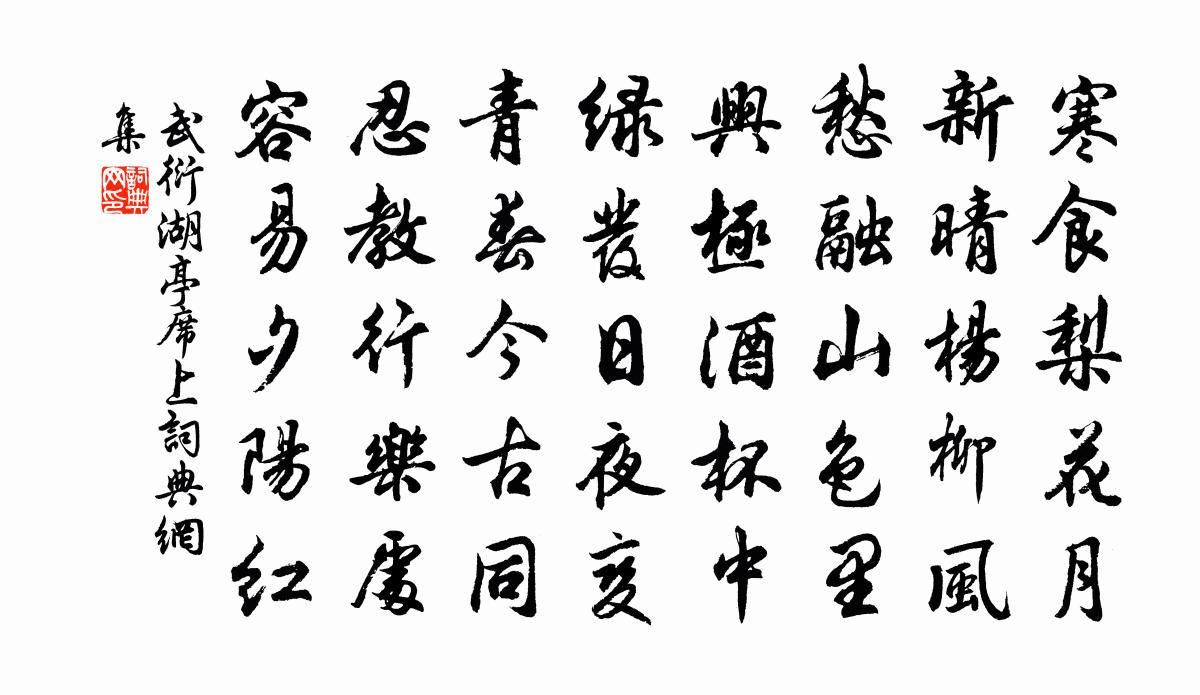 寒食梨花月
新晴楊柳風
愁融山色里
興極酒杯中
绿發日夜变
青春今古同
忍教行樂處
容易夕陽红
武衍湖亭席上詞典網
集
詞典
网印